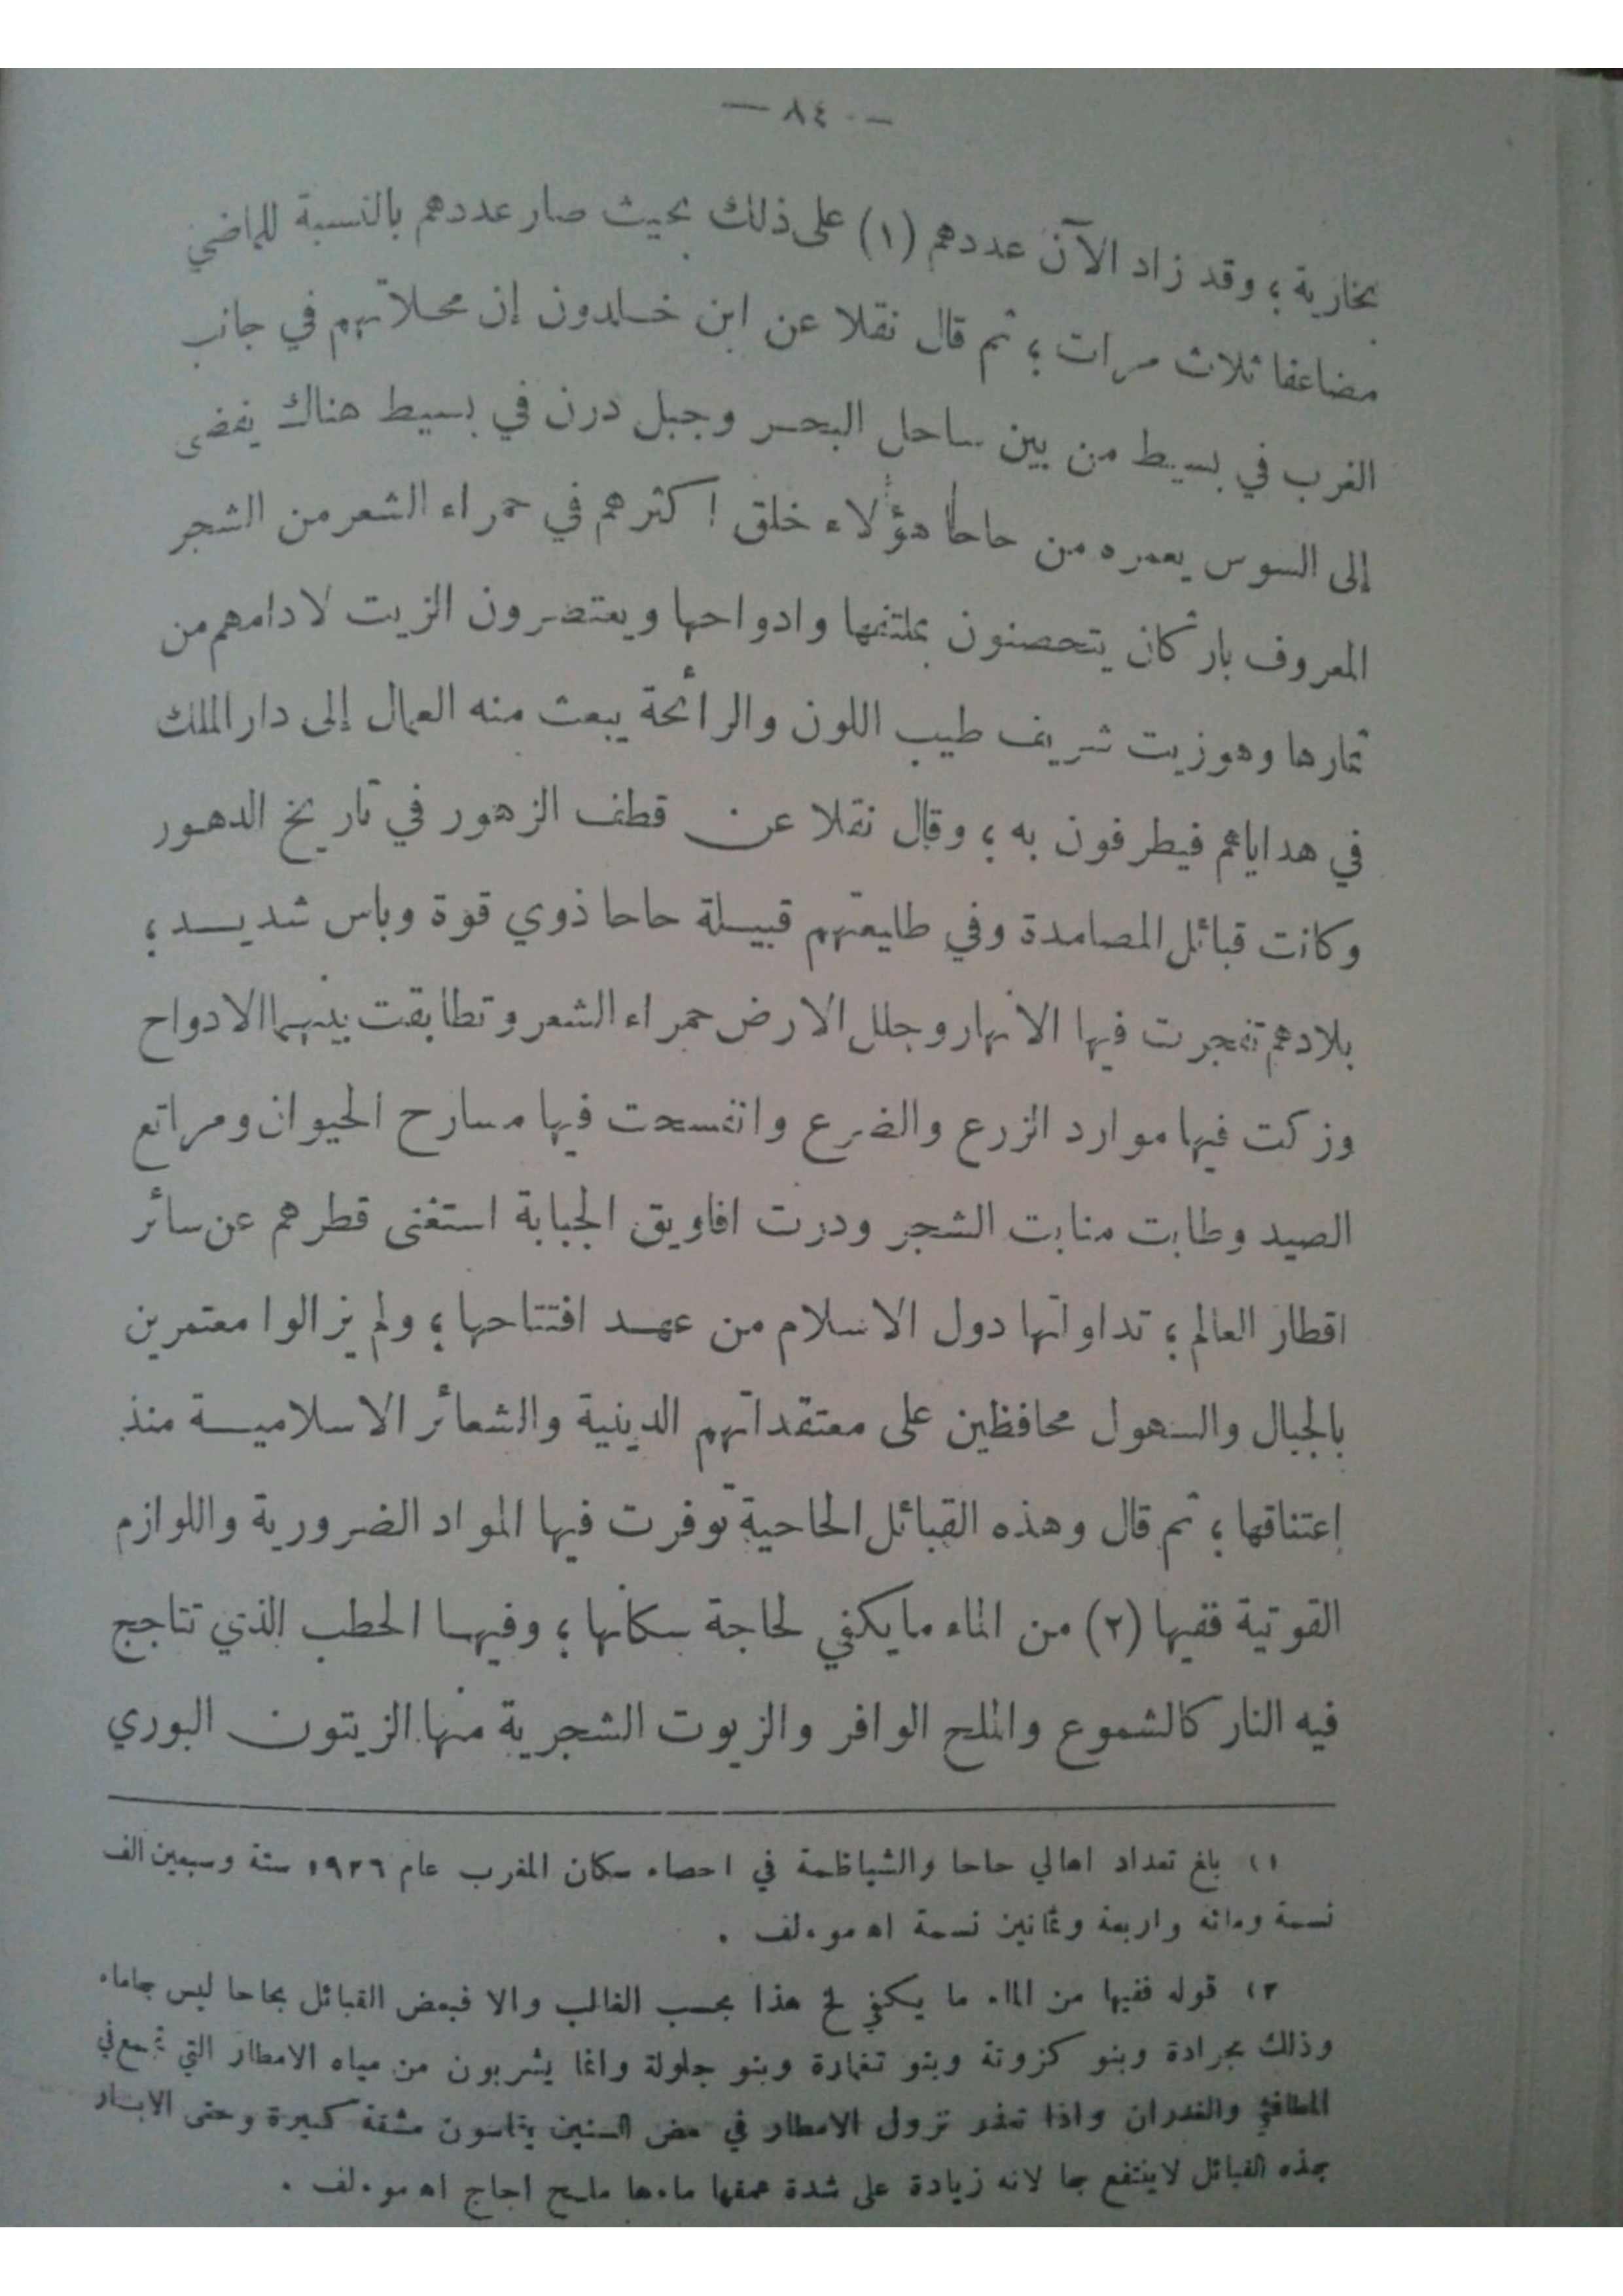 — ٨٤ —
بخارية ؛ وقد زاد الآن عددهم (١) على ذلك بحيث صار عددهم بالنسبة للماضي
مضاعفا ثلاث مرات ؛ ثم قال نقلا عن ابن خلدون إن محلاتهم في جانب
الغرب في بسيط من بين ساحل البحر وجبل درن في بسيط هناك يفضى
إلى السوس يعمره من حاحا هؤلاء خلق اكثرهم في حمراء الشعر من الشجر
المعروف باركان يتحصنون بملتفها وادواحها ويعتصرون الزيت لادامهم من
ثمارها وهو زيت شريف طيب اللون والرائحة يبعث منه العمال إلى دار الملك
في هداياهم فيطرفون به ؛ وقال نقلا عن قطف الزهور في تاريخ الدهور
وكانت قبائل المصامدة وفي طليعتهم قبيلة حاحا ذوي قوة وباس شديد ؛
بلادهم تفجرت فيها الانهار وجلل الارض حمراء الشعر وتطابقت بينهما الادواح
وزكت فيها موارد الزرع والضرع وانفسحت فيها مسارح الحيوان ومراتع
الصيد وطابت منابت الشجر ودرت افاويق الجباية استغنى قطرهم عن سائر
اقطار العالم ؛ تداولتها دول الاسلام من عهد افتتاحها ؛ ولم يزالوا معتمرين
بالجبال والسهول محافظين على معتقداتهم الدينية والشعائر الاسلامية منذ
إعتناقها ؛ ثم قال وهذه القبائل الحاحية توفرت فيها المواد الضرورية واللوازم
القوتية ففيها (٢) من الماء ما يكفي لحاجة سكانها ؛ وفيها الحطب الذي تتاجج
فيه النار كالشموع والملح الوافر والزيوت الشجرية منها الزيتون البوري
١) بلغ تعداد اهالي حاحا والشياظمة في احصاء سكان المغرب عام ١٩٢٦ ستة وسبعين الف
نسمة ومائه واربعة وثمانين نسمة اه موءلف .
٢) قوله ففيها من الماء ما يكفي لخ هذا بحسب الغالب والا فبعض القبائل بحاحا ليس بهاماء
وذلك بحرادة وبنو كزوتة وبنو تغمارة وبنو جلولة وانما يشربون من مياه الامطار التي تجمع في
المطافي والغدران واذا تعذر نزول الامطار في بعض السنين يقاسون مشقة كبيرة وحتى الابار
بهذه القبائل لاينتفع بها لانه زيادة على شدة عمقها ماءها مليح اجاج اه موءلف .